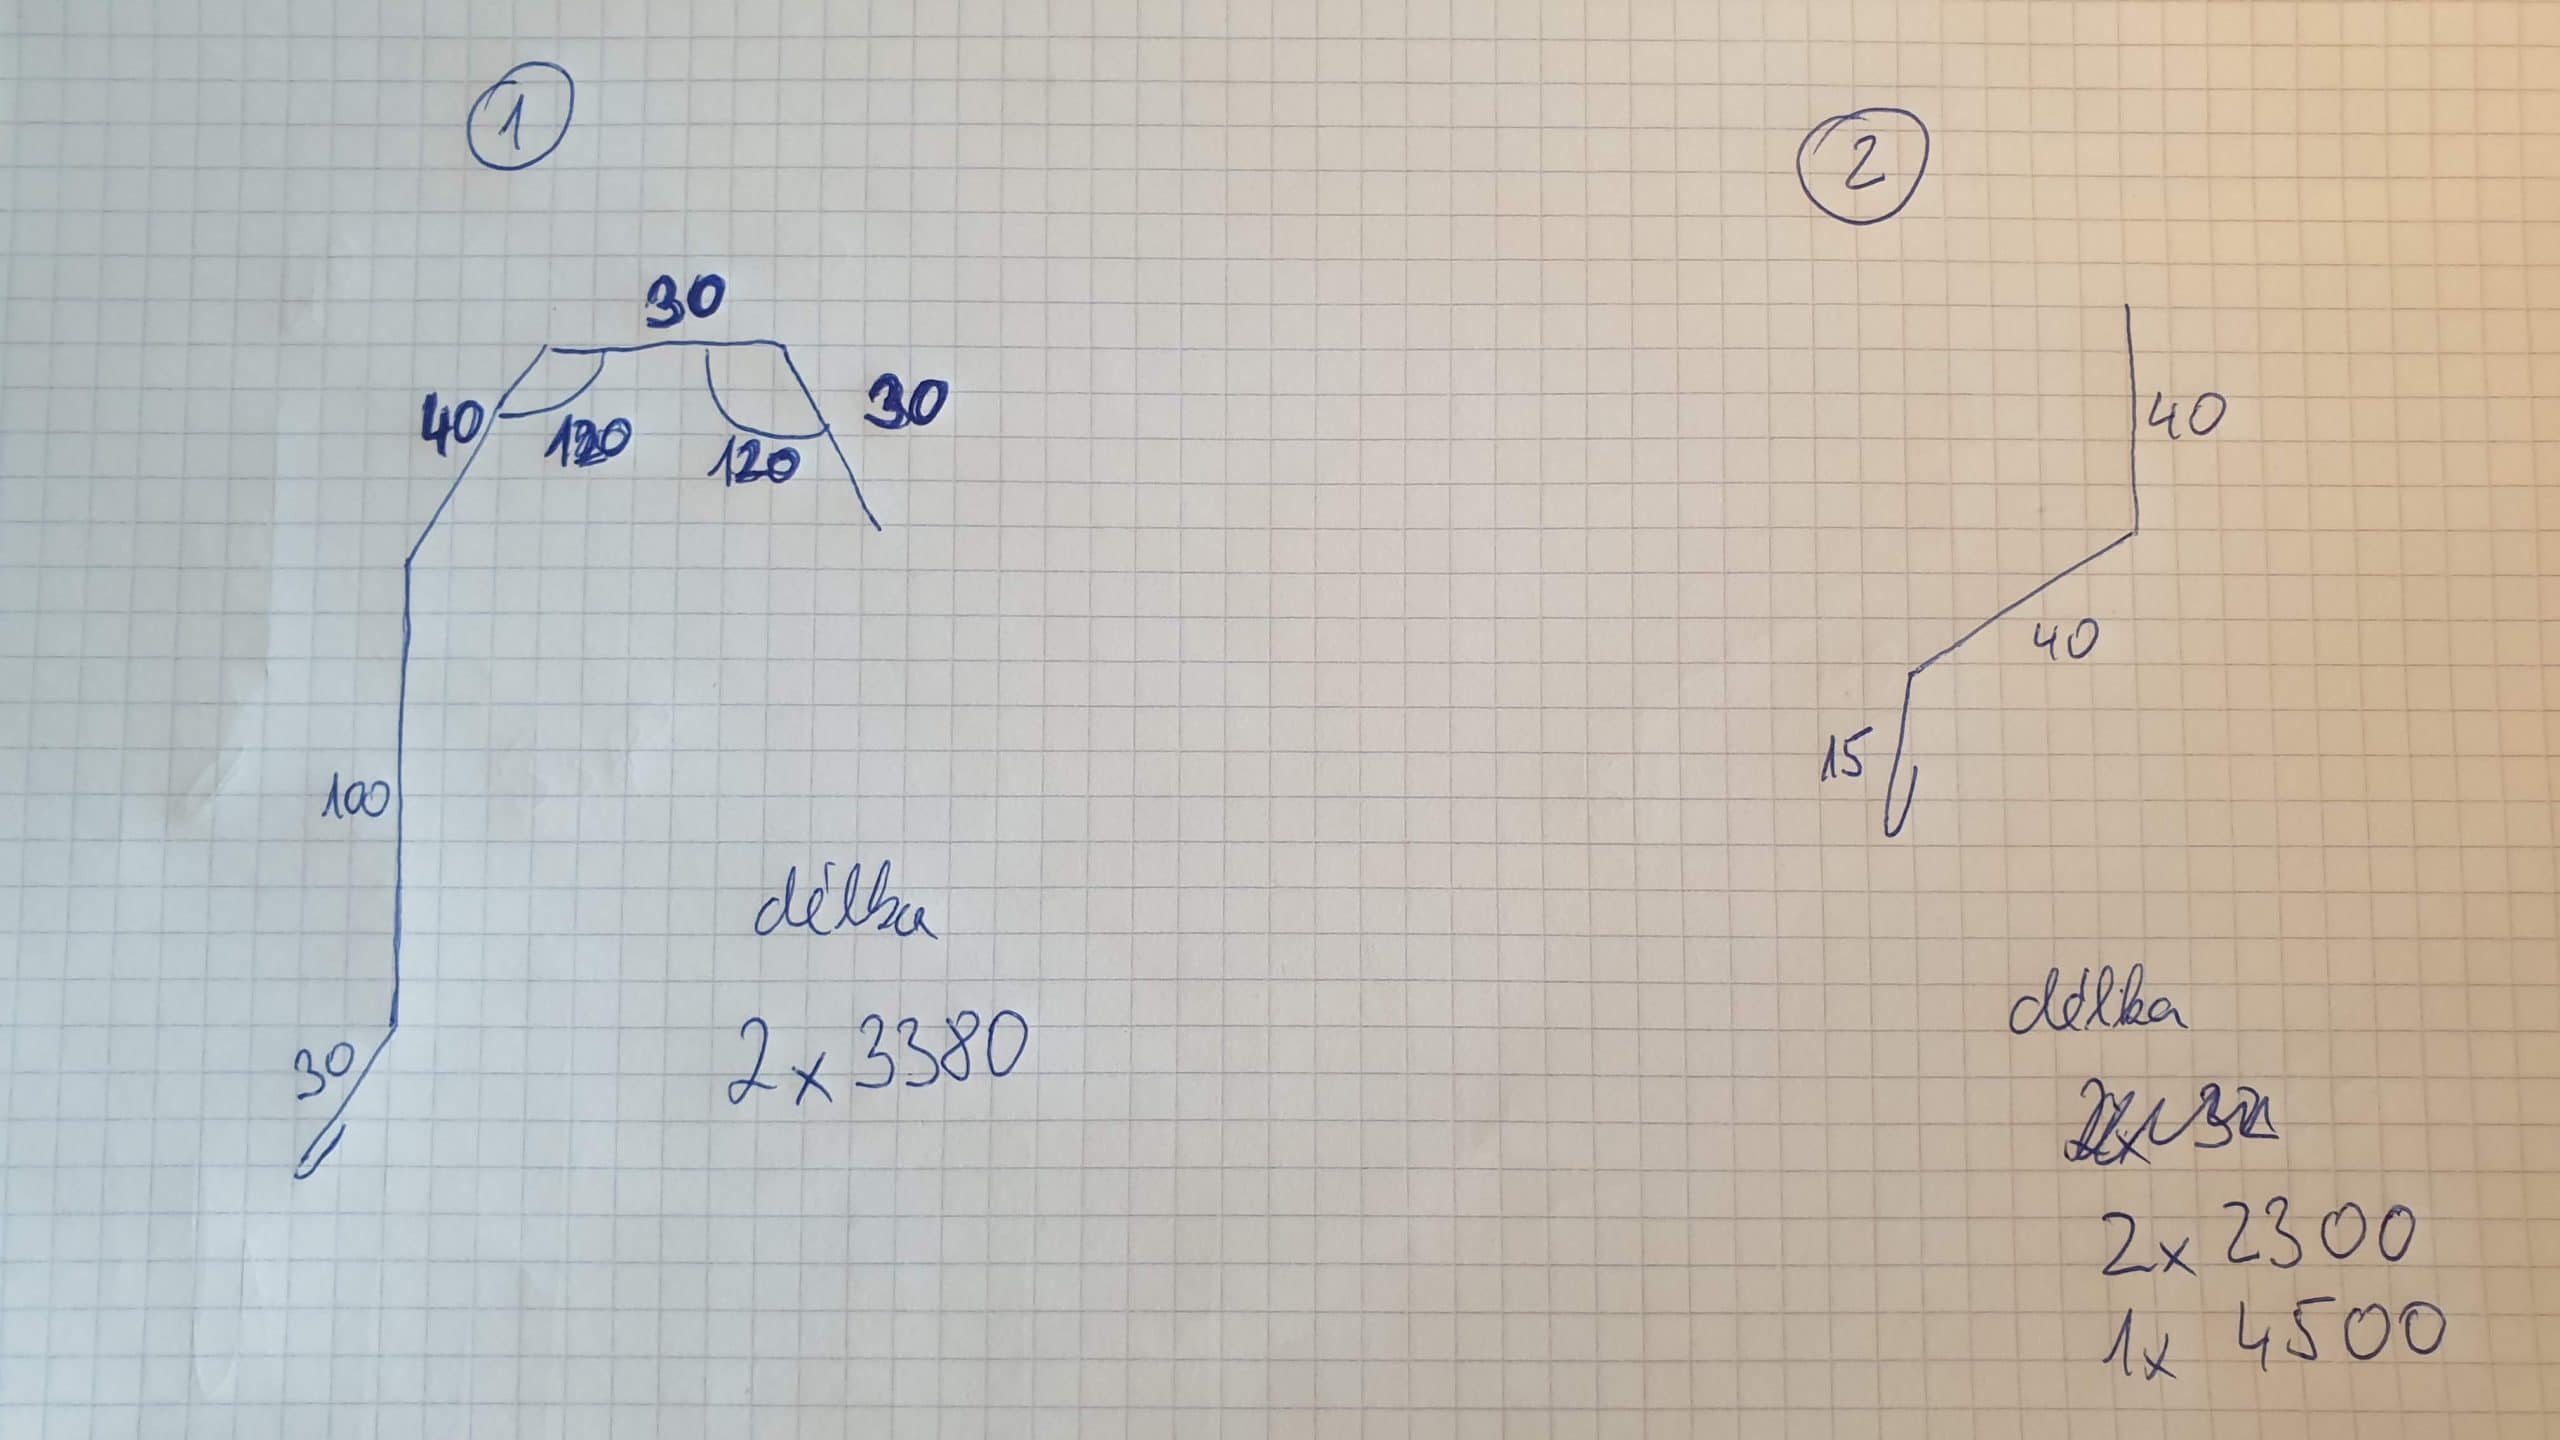 1
30
40
120
120
30
100
30
délka
2x 3380
2
40
40
15
délka
2x 2300
1x 4500